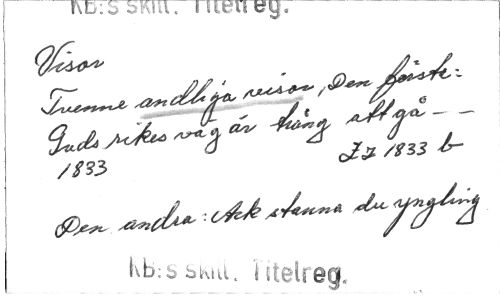 KB:s skill. Titelreg.
Visor
Tvenne andliga visor, Den förste:
Guds rikes väg är trång att gå – –
1833 ZZ 1833 b
Den andra: Ack stanna du yngling
KB:s skill. Titelreg.